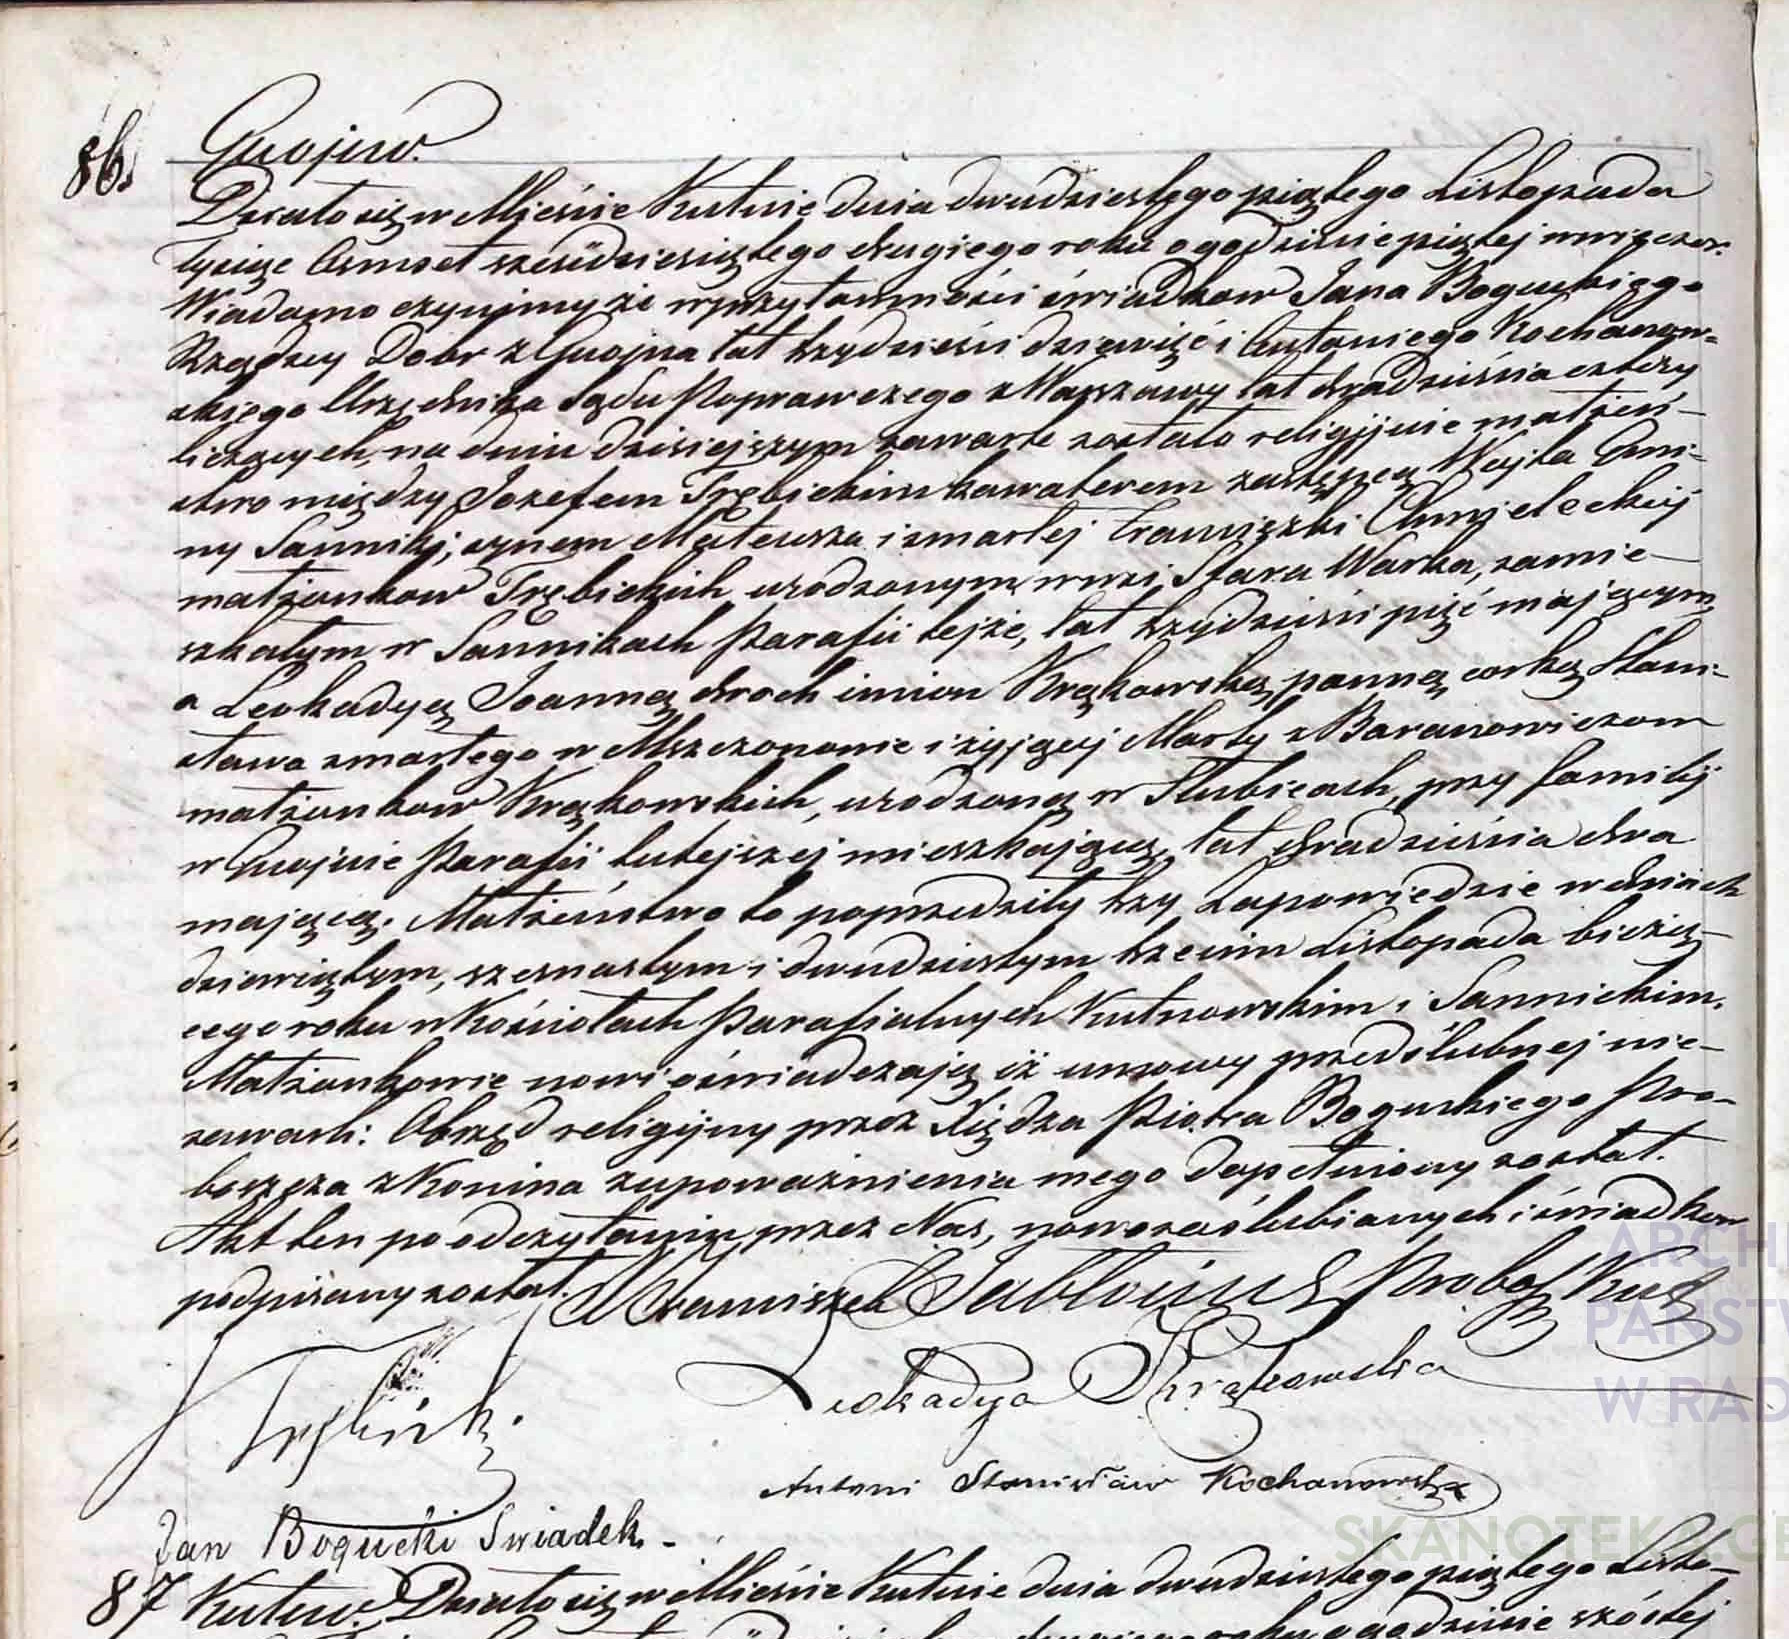 86. Gnojno.
Działo się w Mieście Kutnie dnia dwudziestego piątego Listopada
tysiąc Osmset sześćdziesiątego drugiego roku o godzinie piątej wwieczor.
Wiadomo czynimy że wprzytomności świadkow Jana Boguckiego
Rządzcy Dobr z Gnojna lat trzydzieści dziewięć i Antoniego Kochanow=
skiego Urzędnika Sądu Poprawczego z Warszawy lat dwadzieścia cztery
liczących, na dniu dzisiejszym zawarte zostało religijnie małżeń-
stwo między Jozefem Trębickim kawalerem zastępcą Wojta Gmi-
ny Sanniki, synem Mateusza i zmarłej Franciszki Chmieleckiej
małżonkow Trębickich urodzonym wwsi Stara Warka, zamie-
szkałym w Sannikach Parafii tejże, lat trzydzieści pięć mającym,
a Leokadyą Joanną dwoch imion Krąkowską panną corką Stani-
sława zmarłego w Mszczonowie i żyjącej Marty z Baranowiczow
małżonkow Krąkowskich, urodzoną w Słubicach, przy familij
w Gnojnie Parafii tutejszej mieszkającą, lat dwadzieścia dwa
mającą. Małżeństwo to poprzedziły trzy Zapowiedzie w dniach
dziewiątym, szesnastym i dwudziestym trzecim Listopada bieżą-
cego roku w Kościołach Parafialnych Kutnowskim i Sannickim.
Małżonkowie nowi oświadczają iż umowy przedślubnej nie-
zawarli: Obrzęd religijny przez Xiędza Piotra Boguckiego Pro-
boszcza z Konina zupoważnienia mego dopełniony został.
Akt ten po odczytaniu przez Nas, nowozaślubianych i świadkow
podpisany został. X Franciszek Jabłoński Probosz Kut
Trębicki.
Leokadya Krąkowska
Antoni Stanisław Kochanowski
Jan Bogucki Swiadek.-
87 Kutno. Działo się w Mieście Kutnie dnia dwudziestego piątego Listo-
godzinie szóstej
ARCHI
PAŃSTW
W RAD
SKANOTEKA GE